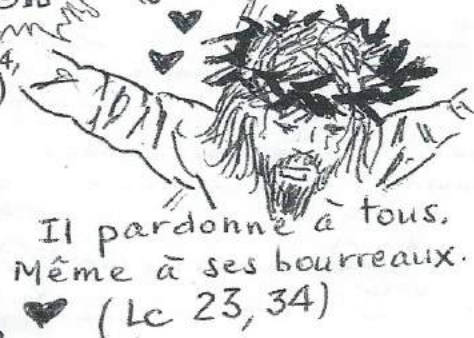 Il pardonne à tous.
Même à ses bourreaux.
(Lc 23, 34)